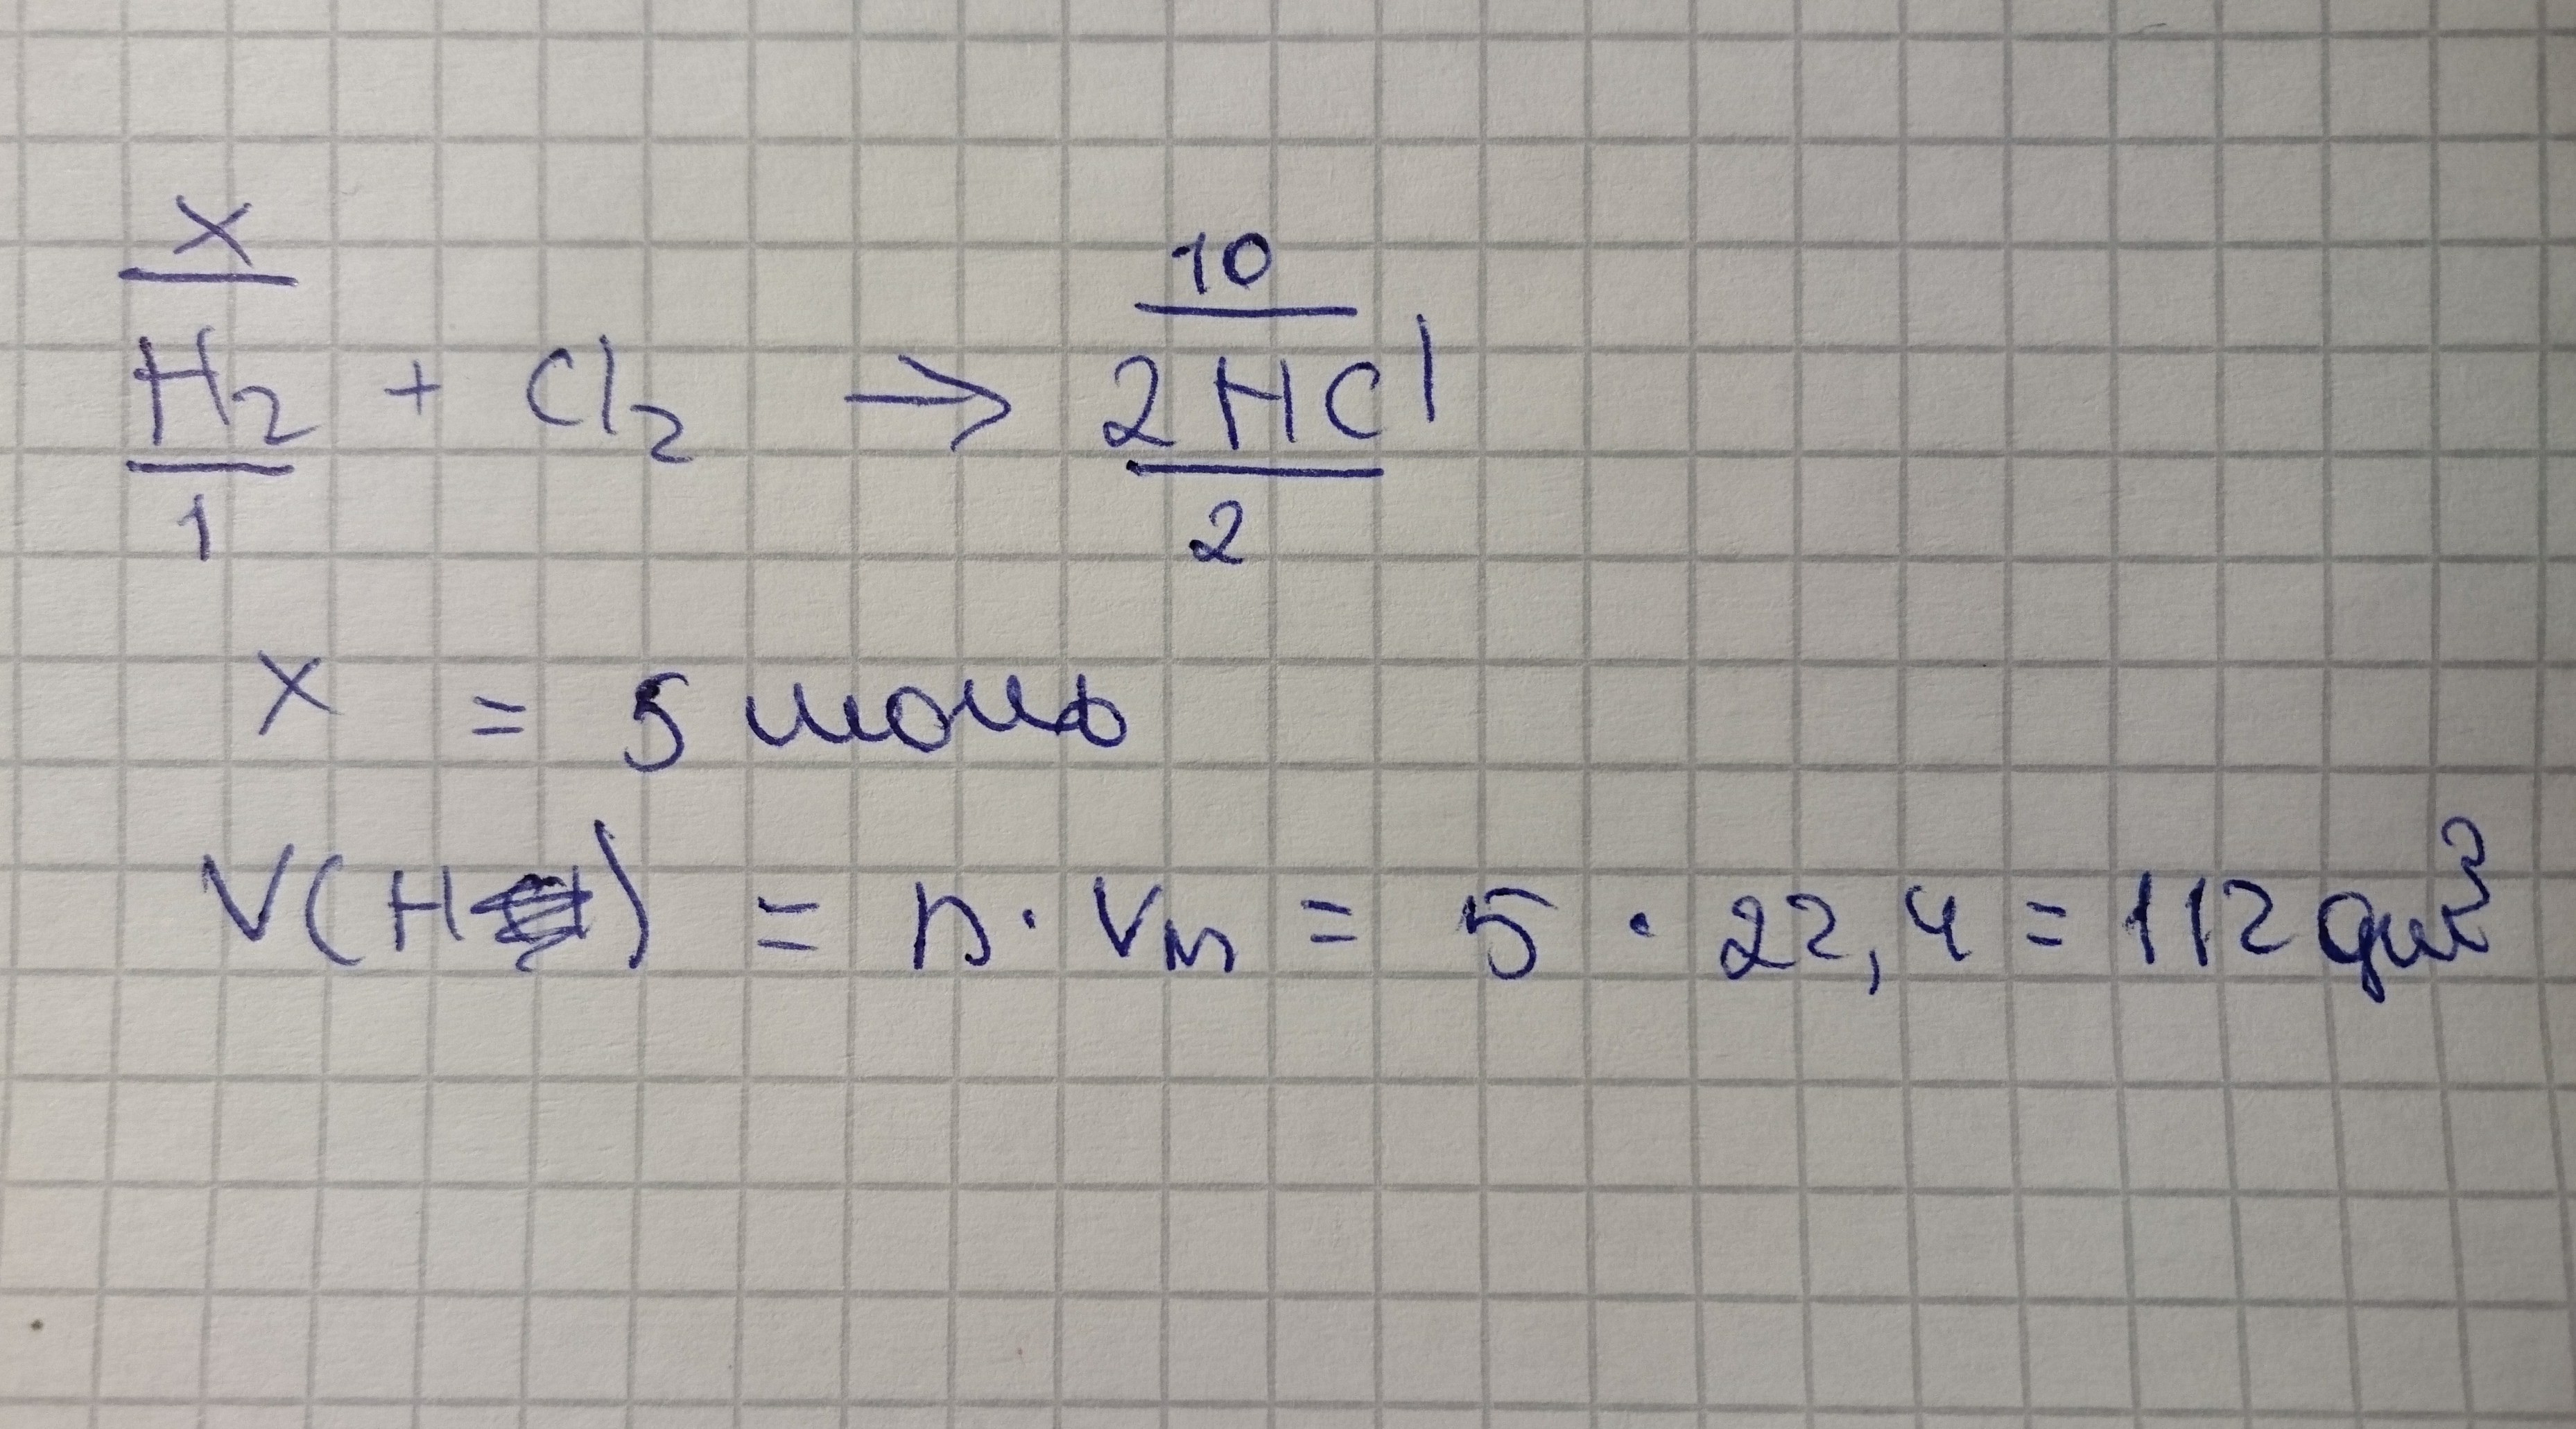 x 10
H₂ + Cl₂ → 2HCl
1 2
x = 5 моль
V(H) = n · Vm = 5 · 22,4 = 112 дм³